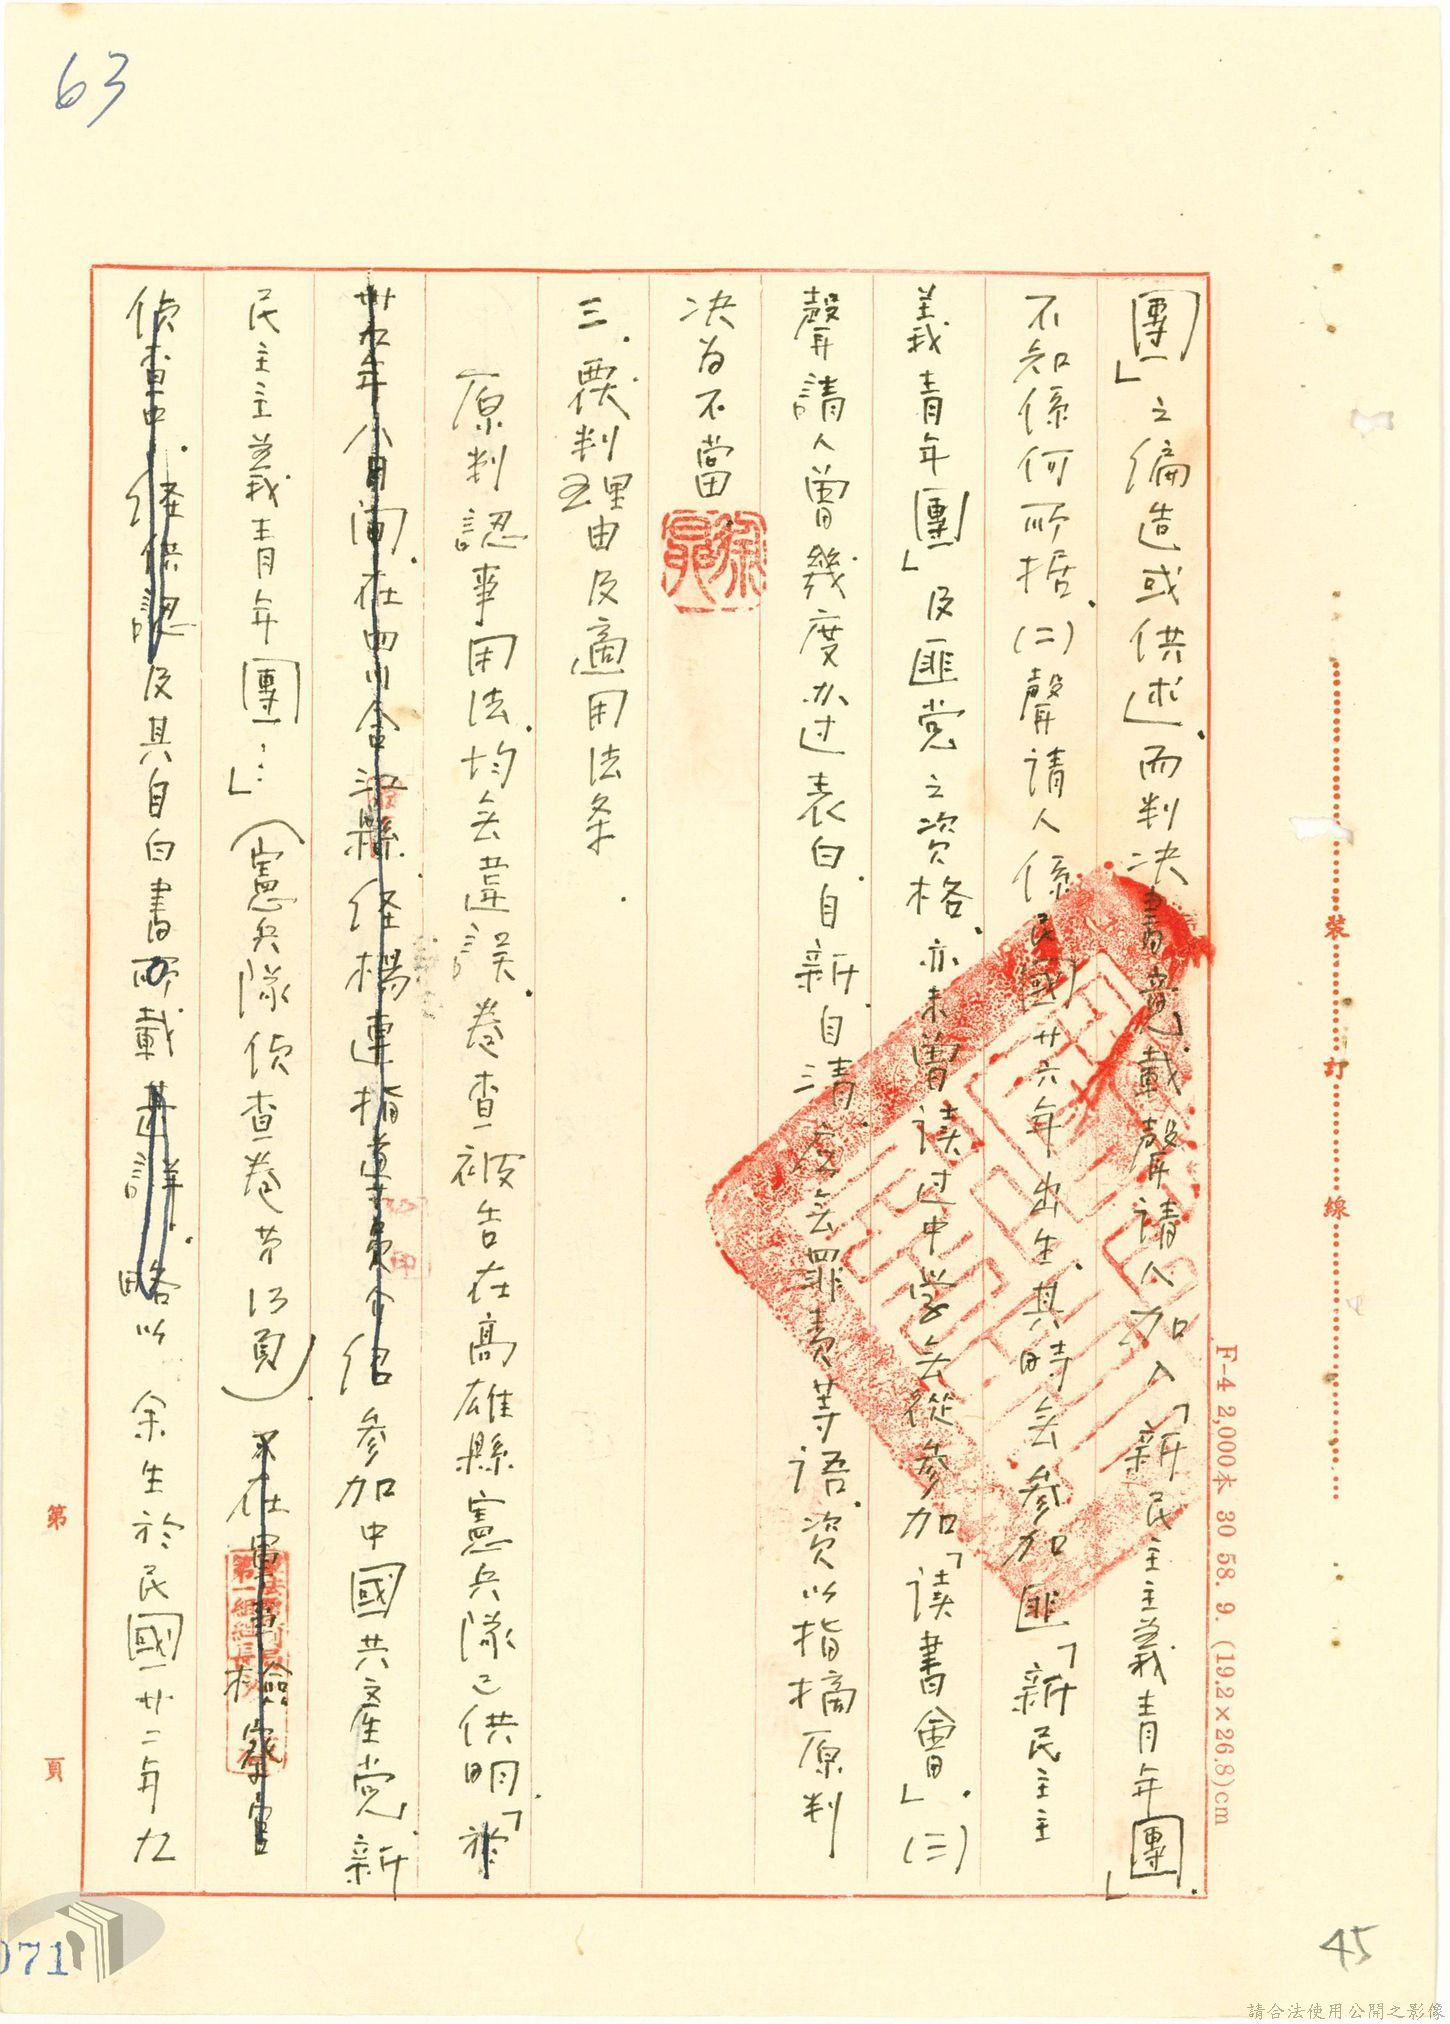 63
團」之偏造或供述,而判決書竟載聲請人加入「新民主主義青年團」.
不知係何所据.(二)聲請人係民國廿六年出生,其時無參加匪「新民主主
義青年團」及匪党之次格,亦未曾读过中学,無從參加「读書會」.(三)
聲請人曾幾度办过表白,自新,自清,應無罪責等语,次以指摘原判
決為不當.
三.覆判理由及適用法条.
原判認事用法,均無違誤,卷查被告在高雄縣憲兵隊已供明,「於
卅九年八月间,在四川合江縣,经楊連指導員介绍參加中國共產党,新
民主主義青年團…」(憲兵隊偵查卷第13頁).在軍事檢察官
偵查中.经供認及其自白書所載甚詳.略以余生於民國廿二年九
裝 訂 線
F-4 2,000本 30 58. 9. (19.2×26.8)cm
第 頁
071
45
請合法使用公開之影像